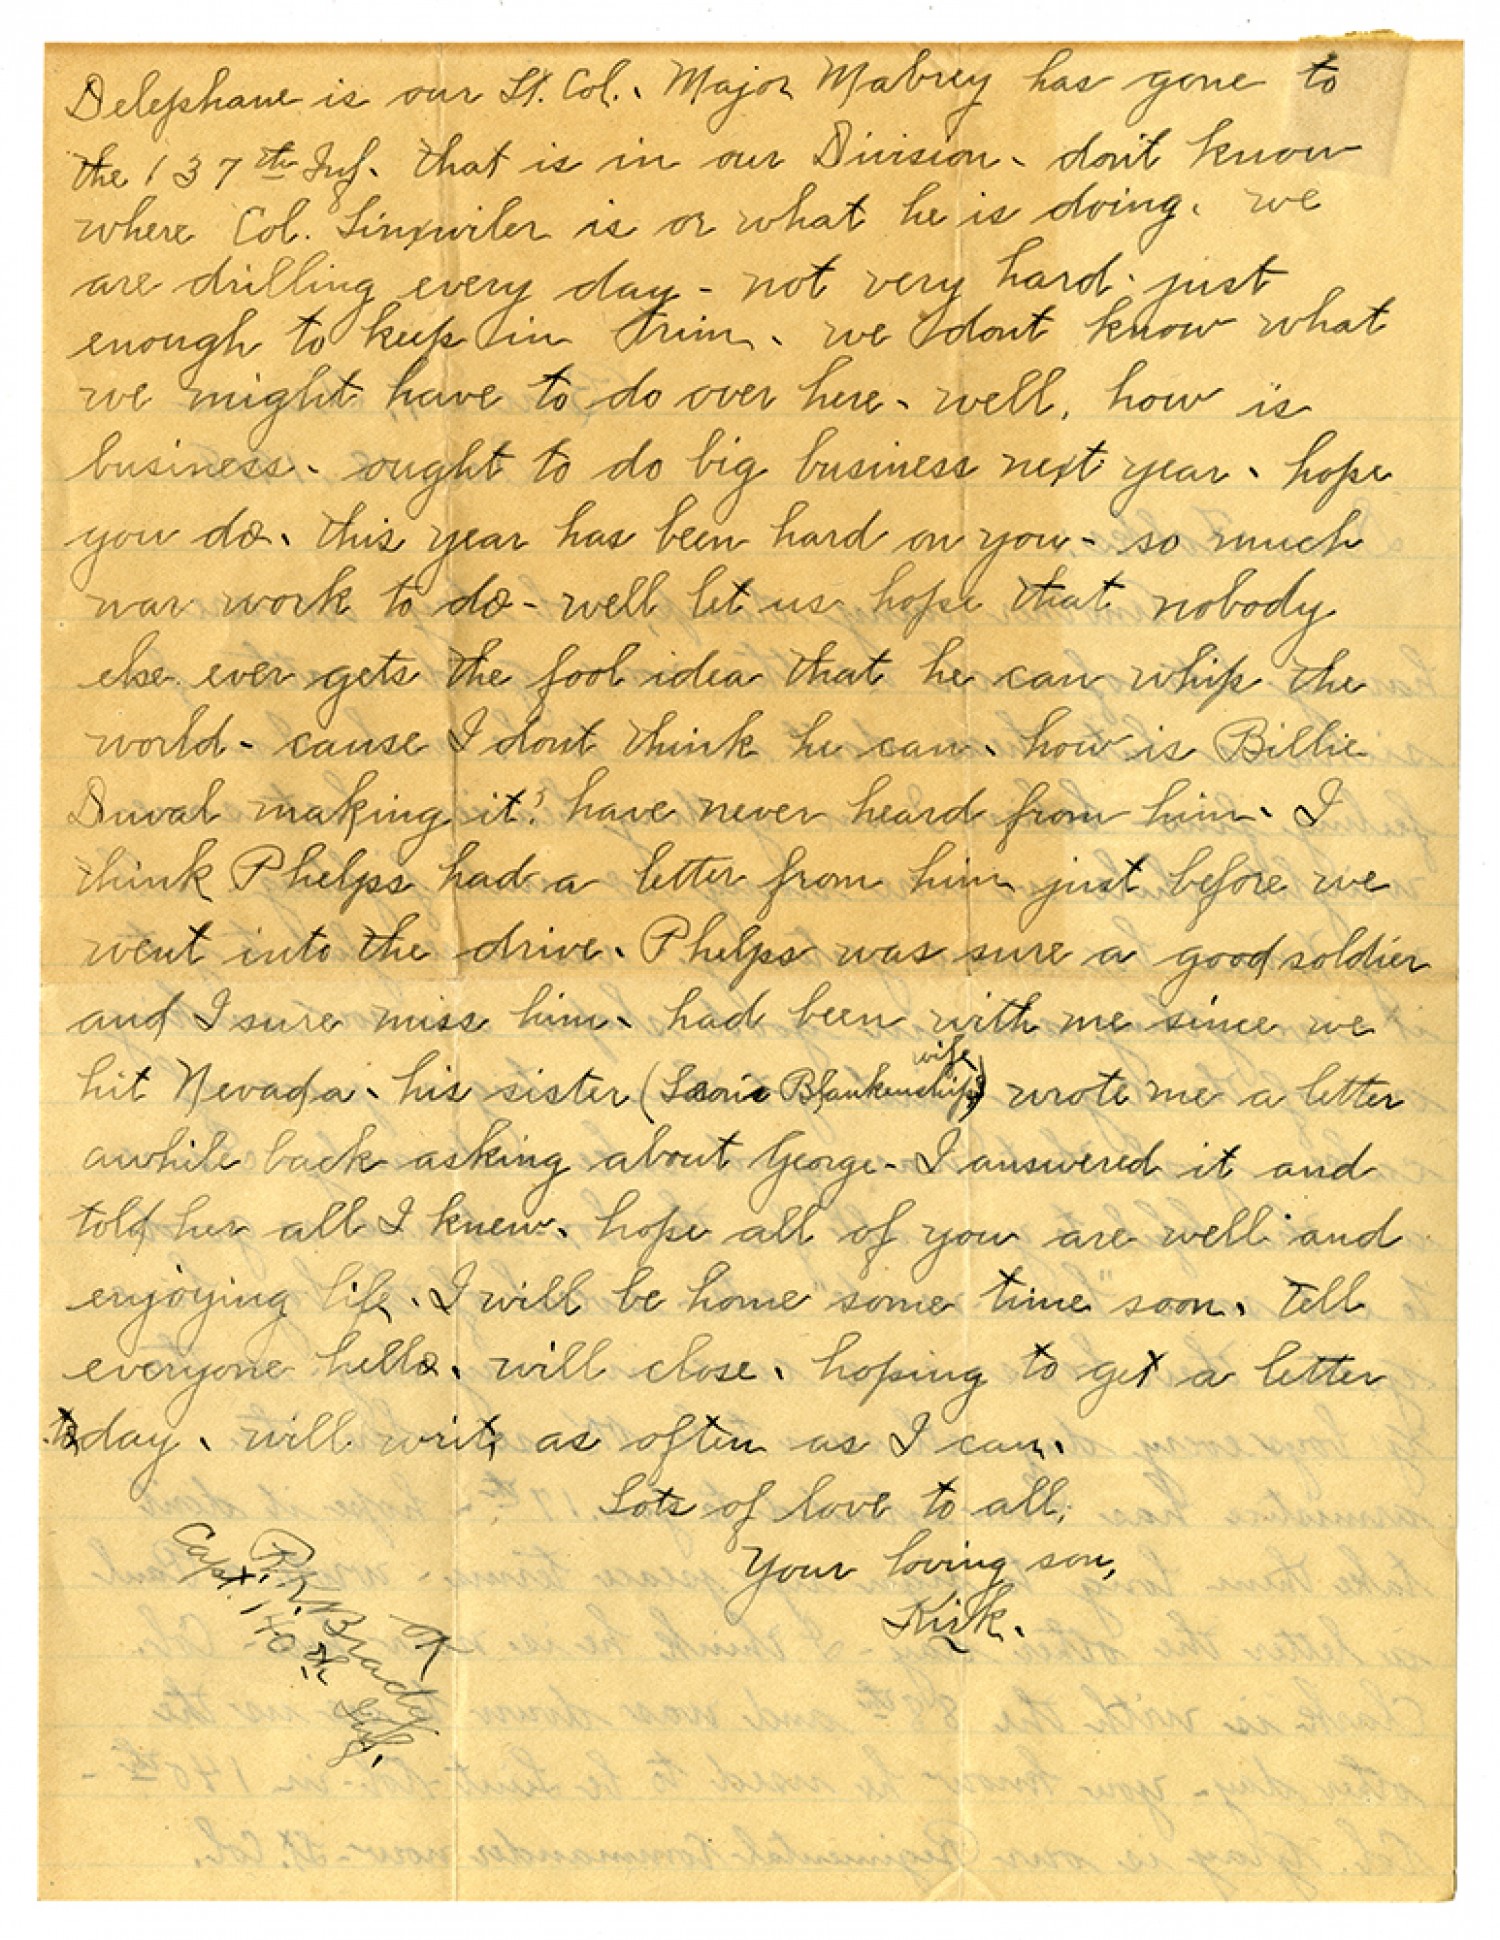 Delephane is our Lt. Col. Major Mabrey has gone to
the 137th Inf. that is in our Division - don't know
where Col. Linxwiler is or what he is doing. we
are drilling every day - not very hard - just
enough to keep in trim. we dont know what
we might have to do over here - well, how is
business - ought to do big business next year. hope
you do. this year has been hard on you - so much
war work to do - well let us hope that nobody
else ever gets the fool idea that he can whip the
world - cause I dont think he can. how is Billie
Duval making it? have never heard from him. I
think Phelps had a letter from him just before we
went into the drive. Phelps was sure a good soldier
and I sure miss him. had been with me since we
hit Nevada. his sister (Blankenship's wife) wrote me a letter
awhile back asking about George - I answered it and
told her all I knew. hope all of you are well and
enjoying life. I will be home "some time" soon. Tell
everyone hello. will close. hoping to get a letter
today. will write as often as I can.
Lots of love to all,
Your loving son,
Kirk.
OK
R.K. Brady
Capt. 140th Inf.